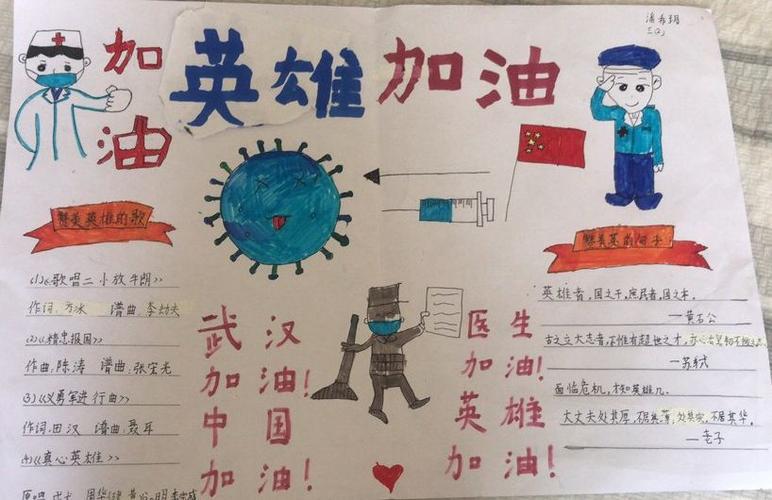 潘希玥
三(2)
加油
英雄加油
赞美英雄的歌
(1)《歌唱二小放牛郎》
作词:方冰 谱曲:李劫夫
(2)《精忠报国》
作曲:陈涛 谱曲:张宏光
(3)《义勇军进行曲》
作词:田汉 谱曲:聂耳
(4)《真心英雄》
原唱:成龙 周华健 黄
武汉
加油!
中国
加油!
医生
加油!
英雄
加油!
赞美英雄的句子
英雄者,国之干,庶民者,国之本。
—黄石公
古之立大志者,不惟有超世之才,亦必有坚韧不拔之志。
—苏轼
面临危机,才知英雄儿。
大丈夫处其厚,不居其薄,处其实,不居其华。
—老子